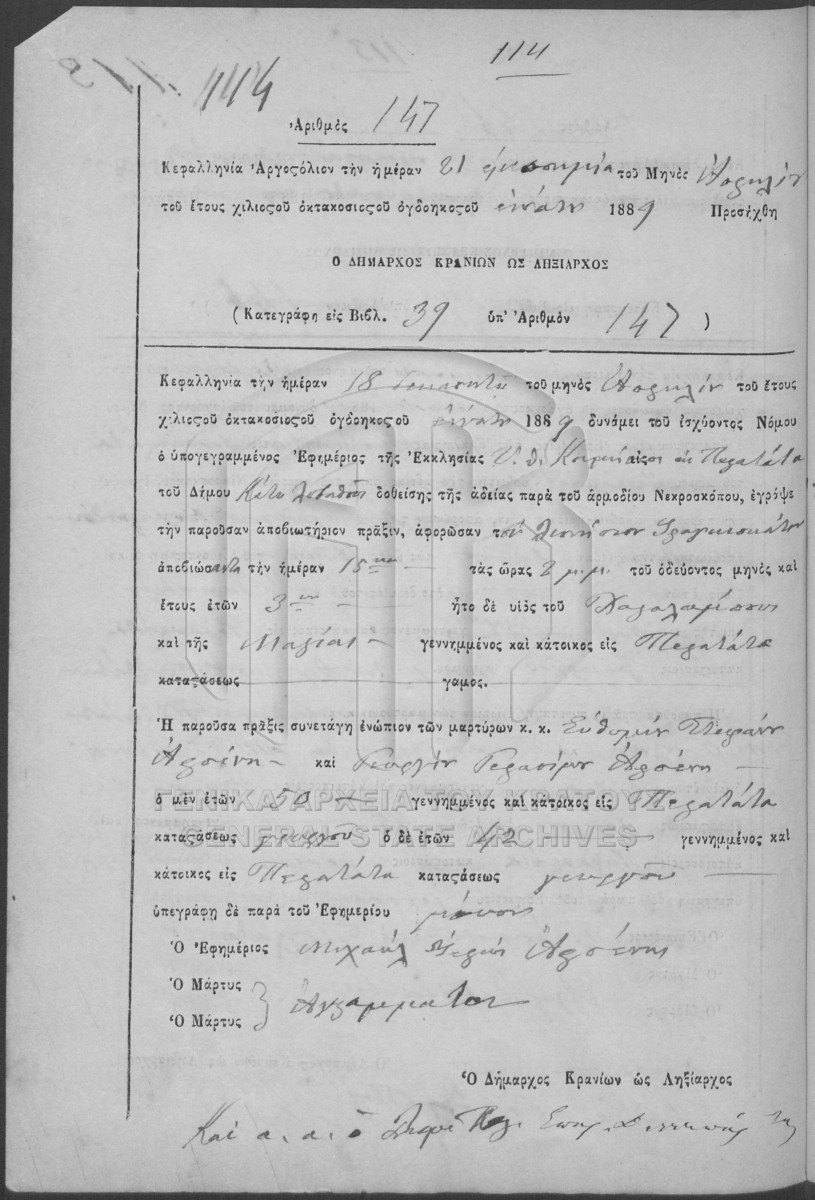 114
114
Ἀριθμὸς 147
Κεφαλληνία Ἀργοςόλιον τὴν ἡμέραν 21 τοῦ Μηνὸς Ἀπριλίου
τοῦ ἔτους χιλιοςοῦ ὀκτακοσιοςοῦ ὀγδοηκοςοῦ ἐννάτου 1889 Προσήχθη
Ὁ ΔΗΜΑΡΧΟΣ ΚΡΑΝΙΩΝ ΩΣ ΛΗΞΙΑΡΧΟΣ
( Κατεγράφη εἰς Βιβλ. 39 ὑπ' Ἀριθμὸν 147 )
Κεφαλληνία τὴν ἡμέραν 18 τοῦ μηνὸς Ἀπριλίου τοῦ ἔτους
χιλιοςοῦ ὀκτακοσιοςοῦ ὀγδοηκοςοῦ ἐννάτου 1889 δυνάμει τοῦ ἰσχύοντος Νόμου
ὁ ὑπογεγραμμένος Ἐφημέριος τῆς Ἐκκλησίας εἰς Περατάτα
τοῦ Δήμου δοθείσης τῆς ἀδείας παρὰ τοῦ ἁρμοδίου Νεκροσκόπου, ἔγραψε
τὴν παροῦσαν ἀποβιωτήριον πρᾶξιν, ἀφορῶσαν τὸν Διονύσιον Φραγκισκάτον
ἀποβιώσαντα τὴν ἡμέραν 15 τὰς ὥρας 2 μ.μ. τοῦ ὁδεύοντος μηνὸς καὶ
ἔτους ἐτῶν 3 ἦτο δὲ υἱὸς τοῦ Χαραλάμπους
καὶ τῆς Μαρίας γεννημμένος καὶ κάτοικος εἰς Περατάτα
καταςάσεως γαμος.
Ἡ παροῦσα πρᾶξις συνετάγη ἐνώπιον τῶν μαρτύρων κ. κ. Εὐθυμίου Στεφάνου
Ἀρσένη καὶ Γεωργίου Γερασίμου Ἀρσένη
ὁ μὲν ἐτῶν 50 γεννημμένος καὶ κάτοικος εἰς Περατάτα
ΓΕΝΙΚΑ ΑΡΧΕΙΑ ΤΟΥ ΚΡΑΤΟΥΣ
GENERAL STATE ARCHIVES
καταςάσεως γεωργοῦ ὁ δὲ ἐτῶν 42 γεννημμένος καὶ
κάτοικος εἰς Περατάτα καταςάσεως γεωργοῦ
ὑπεγράφη δὲ παρὰ τοῦ Ἐφημερίου μόνον
Ὁ Ἐφημέριος Μιχαὴλ Ἱερεὺς Ἀρσένης
Ὁ Μάρτυς
Ἀγράμματοι
Ὁ Μάρτυς
Ὁ Δήμαρχος Κρανίων ὡς Ληξίαρχος